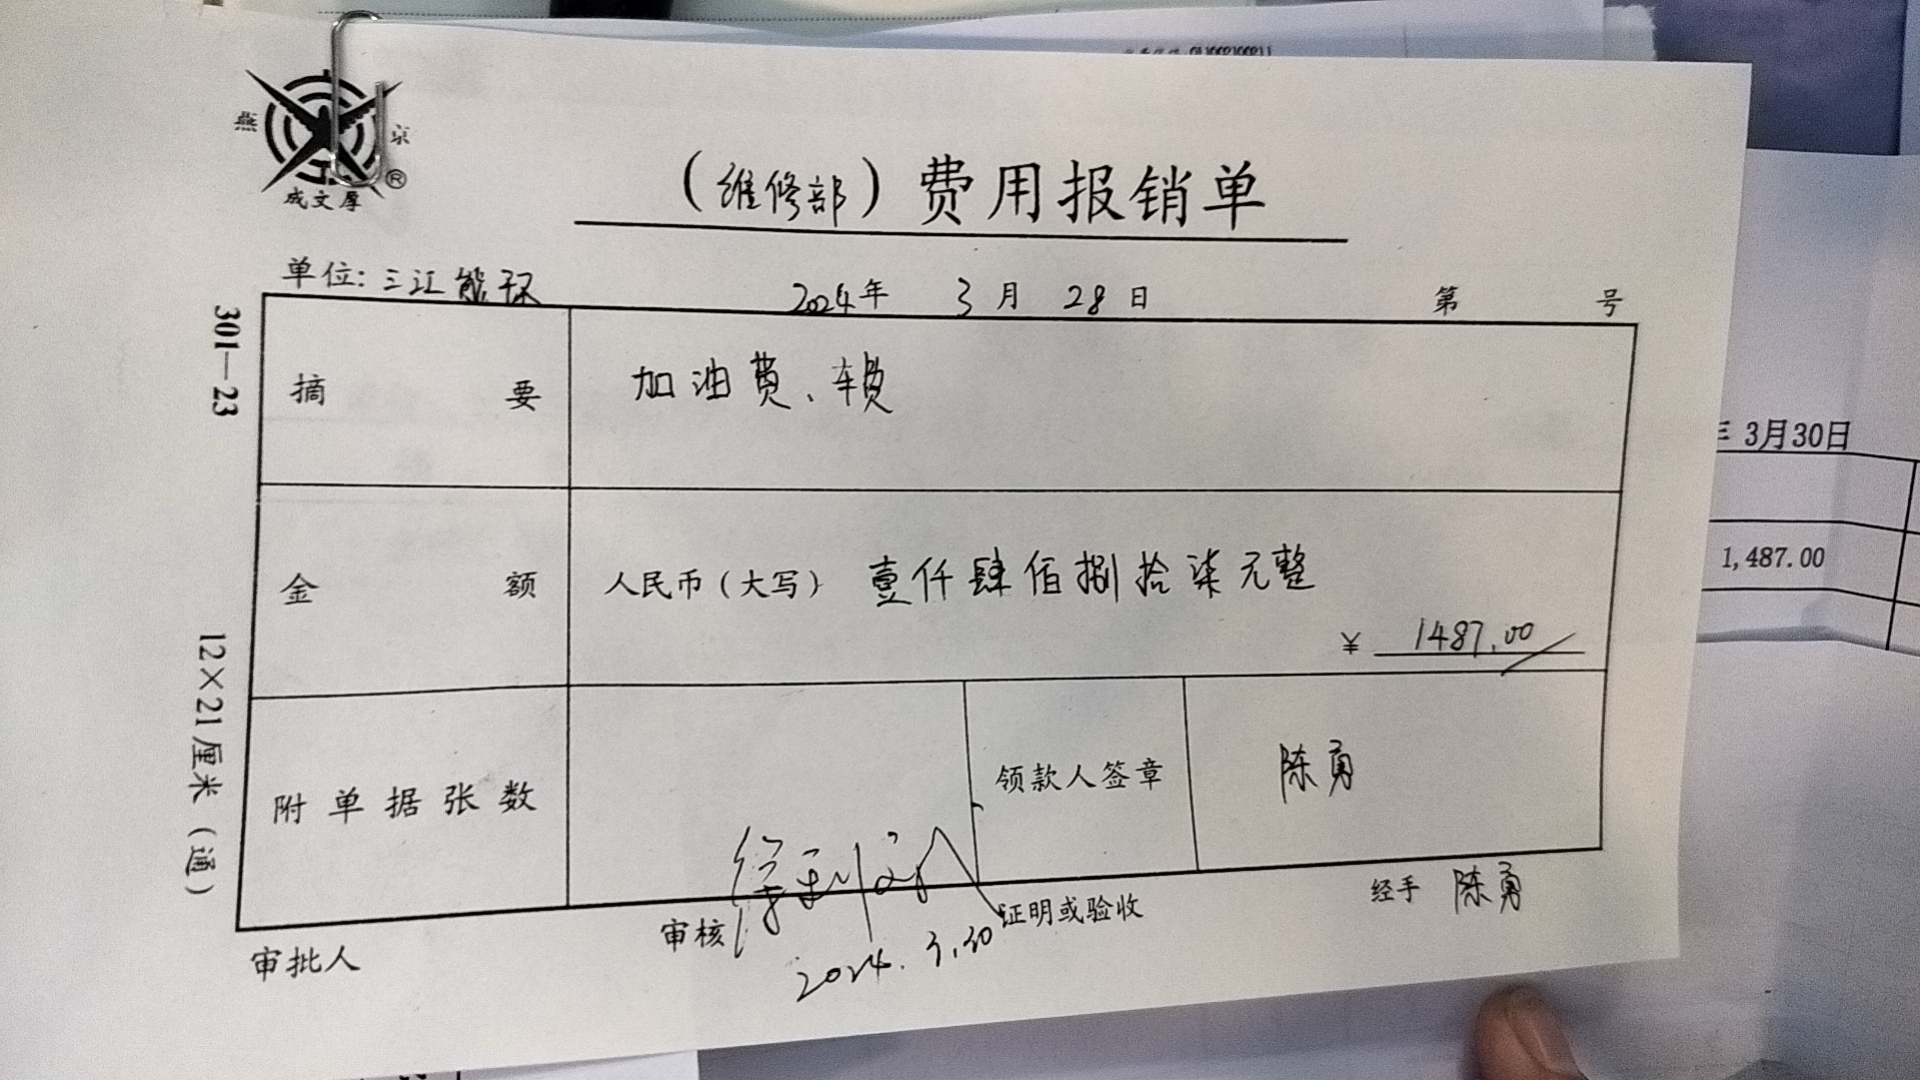 燕 京
成文厚 ®
（维修部）费用报销单
单位: 三江能环 2024年 3月 28日 第 号
摘要 加油费、车费
金额 人民币（大写）壹仟肆佰捌拾柒元整
¥ 1487.00
附单据张数 领款人签章 陈勇
审批人 审核 证明或验收 经手 陈勇
2024.3.30
301—23 12×21厘米（通）
3月30日
1,487.00